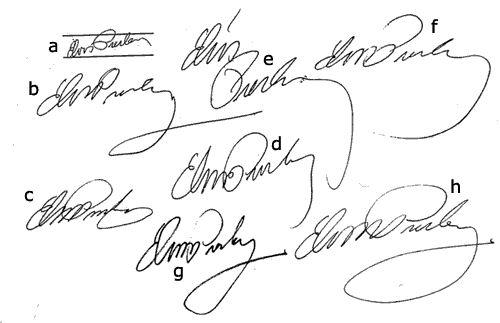 a Elvis Presley
b Elvis Presley
e Elvis
Presley
f Elvis Presley
c Elvis Presley
d Elvis Presley
g Elvis Presley
h Elvis Presley